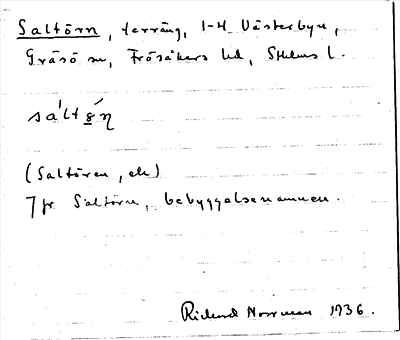 Saltörn, terräng, 1-4 Västerbyn,
Gräsö sn, Frösåkers hd, Sthlms l.
sáltö́ƞ
(Saltören, ek)
Jfr Saltörn, bebyggelsenamnen.
Rickard Norrman 1936.